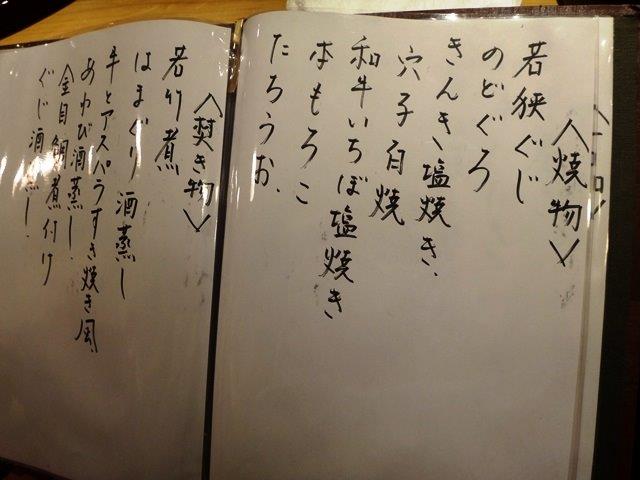 〈焼物〉
若狭ぐじ
のどぐろ
きんき塩焼き、
穴子白焼
和牛いちぼ塩焼き
本もろこ
たちうお、
〈焚き物〉
若竹煮
はまぐり酒蒸し
牛とアスパラすき焼き風、
あわび酒蒸し、
金目鯛煮付け
ぐじ酒蒸し、